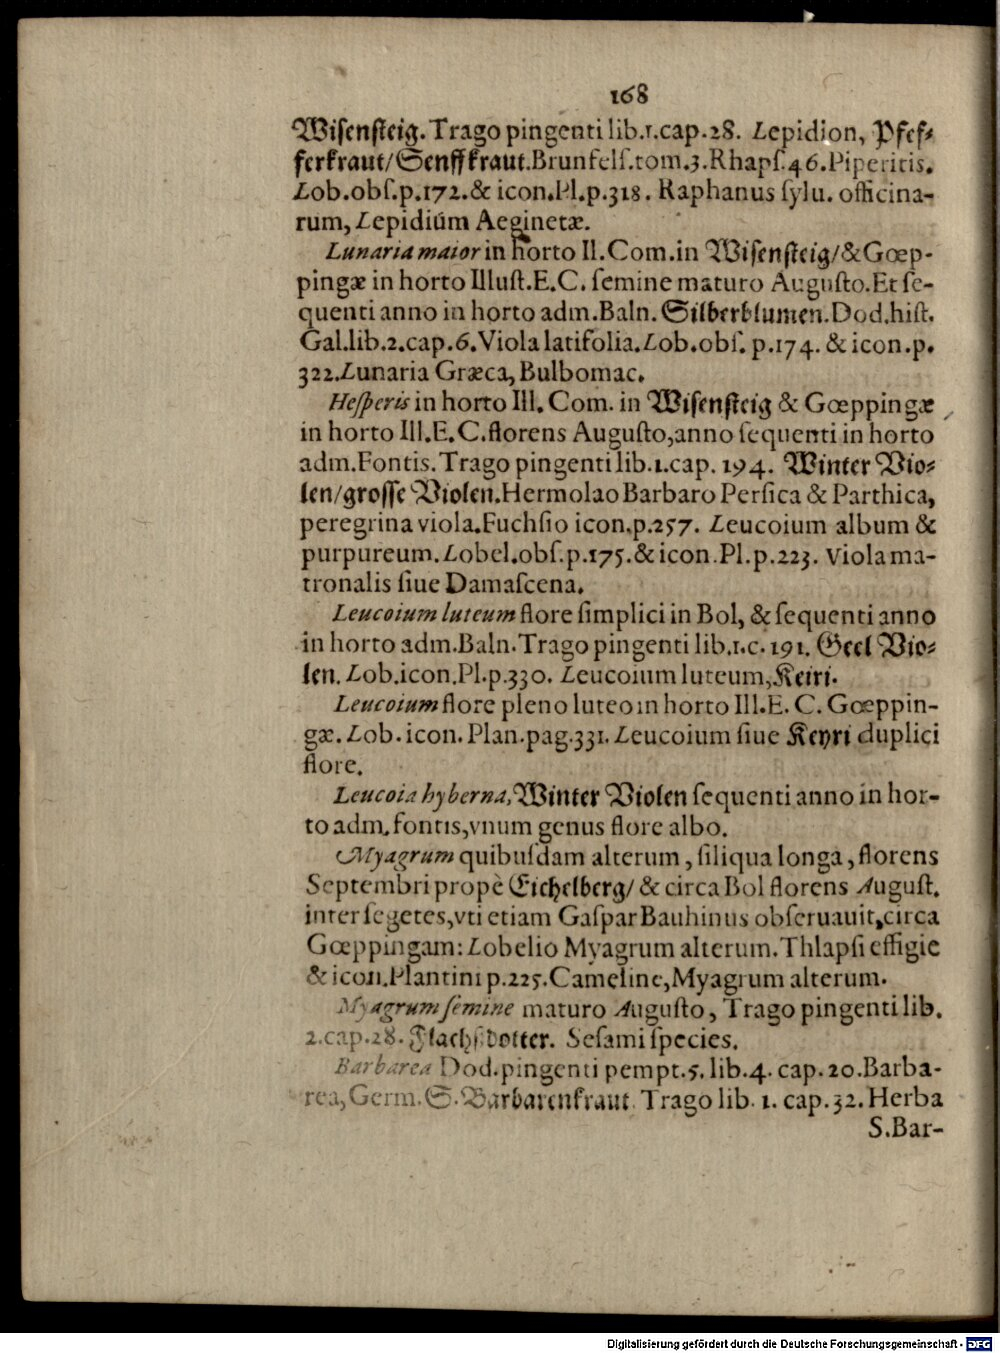 168
Wiſenſteig. Trago pingenti lib.1.cap.28. Lepidion, Pfef⸗
ferkraut/Senffkraut.Brunfelſ.tom.3.Rhapſ.46.Piperitis.
Lob.obſ.p.172.& icon.Pl.p.318. Raphanus ſylu. officina-
rum, Lepidiúm Aeginetæ.
Lunaria maior in horto Il.Com.in Wiſenſteig/&Gœp-
pingæ in horto Illuſt.E.C. ſemine maturo Auguſto.Et ſe-
quenti anno in horto adm.Baln. Silberblumen.Dod.hiſt.
Gal.lib.2.cap.6.Viola latifolia.Lob.obſ. p.174. & icon.p.
322.Lunaria Græca, Bulbomac.
Heſperis in horto Ill. Com. in Wiſenſteig & Gœppingæ
in horto Ill.E.C.florens Auguſto,anno ſequenti in horto
adm.Fontis.Trago pingenti lib.1.cap. 194. Winter Vio⸗
len/groſſe Violen.Hermolao Barbaro Perſica & Parthica,
peregrina viola.Fuchſio icon.p.257. Leucoium album &
purpureum.Lobel.obſ.p.175.& icon.Pl.p.223. Viola ma-
tronalis ſiue Damaſcena.
Leucoium luteum flore ſimplici in Bol, & ſequenti anno
in horto adm.Baln.Trago pingenti lib.1.c.191. Geel Vio⸗
len. Lob.icon.Pl.p.330. Leucoium luteum,Keiri.
Leucoium flore pleno luteo in horto Ill.E. C. Gœppin-
gæ.Lob.icon. Plan.pag.331.Leucoium ſiue Keyri duplici
flore.
Leucoia hyberna,Winter Violen ſequenti anno in hor-
to adm.fontis,vnum genus flore albo.
Myagrum quibuſdam alterum, ſiliqua longa, florens
Septembri propè Eichelberg/ & circa Bol florens Auguſt.
inter ſegetes,vti etiam Gaſpar Bauhinus obſeruauit,circa
Gœppingam: Lobelio Myagrum alterum.Thlapſi effigie
& icon.Plantini p.225.Cameline,Myagrum alterum.
Myagrum ſemine maturo Auguſto, Trago pingenti lib.
2.cap.28. Flachſdotter. Seſami ſpecies.
Barbarea Dod.pingenti pempt.5. lib.4. cap.20.Barba-
rea,Germ.S.Barbarenkraut. Trago lib. 1. cap.32.Herba
S.Bar-
Digitalisierung gefördert durch die Deutsche Forschungsgemeinschaft · DFG